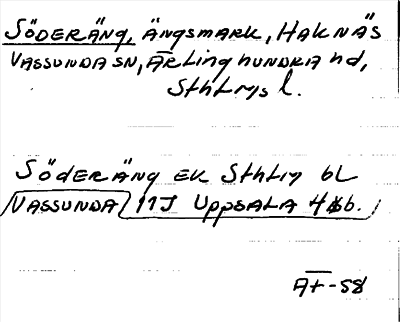 SÖDERÄNG, ÄNGSMARK, HAKNÄS
VASSUNDA SN, ÄRLINGHUNDRA HD,
Sthlms l.
SÖDERÄNG EK Sthlm bl
VASSUNDA 11J UPPSALA 4 b.
ÄT-58